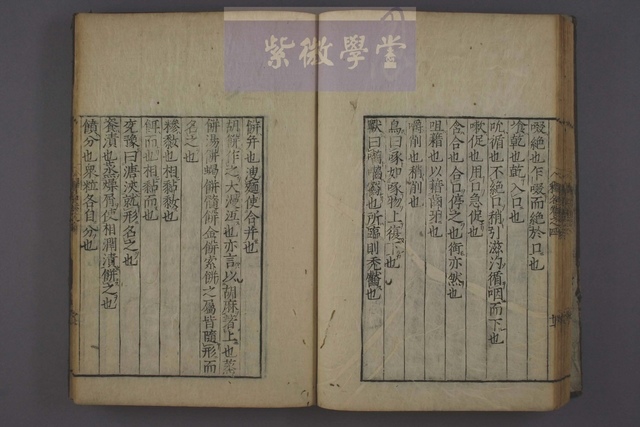 紫微學堂
啜絶也乍啜而絶於口也
飡乾也乾入口也
吮循也不絶口稍引滋汋循咽而下也
嗽促也用口急促也
含合也合口停之也銜亦然也
咀藉也以藉齒牙也
嚼削也稍削也
鳥曰啄如啄物上復下也
獸曰齧齧也所臨則禿齾也
餅并也溲麵使合并也
胡餅作之大漫沍也亦言以胡麻著上也蒸
餅湯餅蝎餅髓餅金餅索餅之屬皆隨形而
名之也
糝黏也相黏黏也
餌而也相黏而也
兗豫曰溏浹就形名之也
也蒸燥屑使相潤漬餅之也
饙分也衆粒各自分也